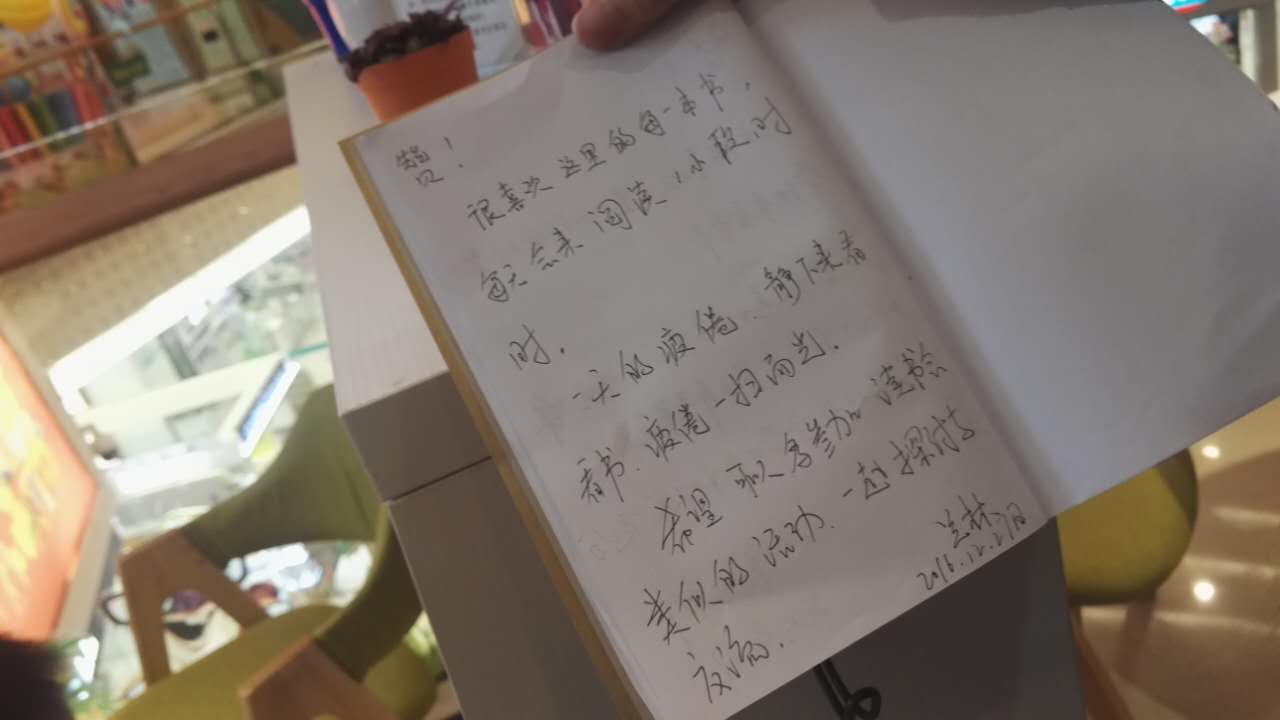 赞!
很喜欢这里的每一本书,
每天会来阅读,小段时
时.
一天的疲倦.静下来看
看书.疲倦一扫而光.
希望可以多参加读书会
类似的活动.一起探讨与
交流.
兰林
2016.12.27日